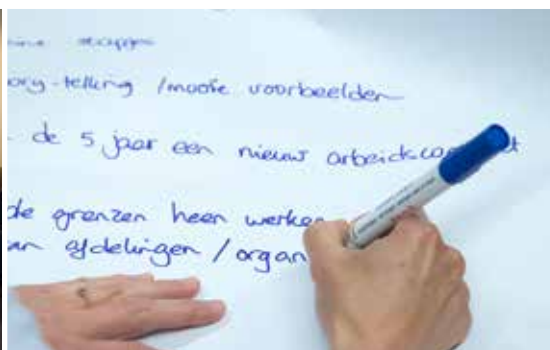 stapjes
ory-telling / mooie voorbeelden
de 5 jaar een nieuw arbeidsco t
de grenzen heen werken
an afdelingen / organ